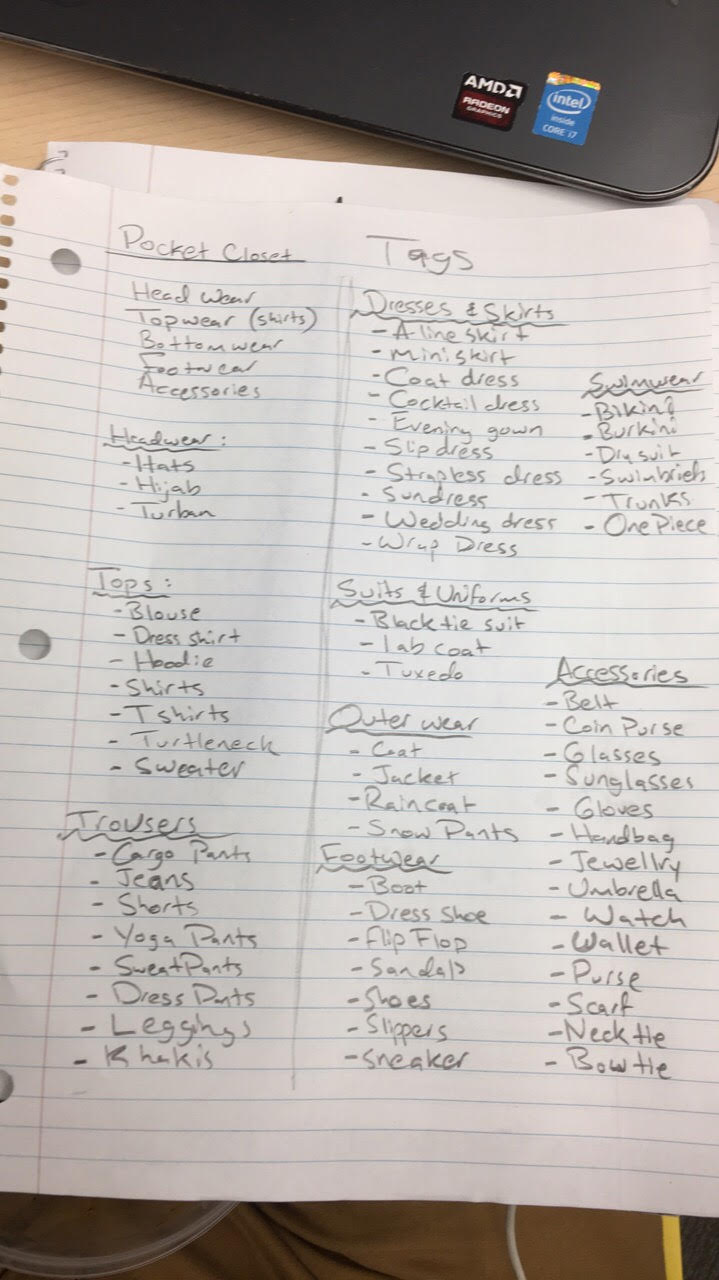 AMD
RADEON
GRAPHICS
intel
inside
CORE i7
Pocket Closet
Tags
Head wear
Topwear (shirts)
Bottomwear
Footwear
Accessories
Headwear:
- Hats
- Hijab
- Turban
Tops:
- Blouse
- Dress shirt
- Hoodie
- Shirts
- T shirts
- Turtleneck
- Sweater
Trousers
- Cargo Pants
- Jeans
- Shorts
- Yoga Pants
- SweatPants
- Dress Pants
- Leggings
- Khakis
Dresses & Skirts
- A line skirt
- miniskirt
- Coat dress
- Cocktail dress
- Evening gown
- Slip dress
- Strapless dress
- Sundress
- Wedding dress
- Wrap Dress
Suits & Uniforms
- Black tie suit
- lab coat
- Tuxedo
Outer wear
- Coat
- Jacket
- Raincoat
- Snow Pants
Footwear
- Boot
- Dress Shoe
- Flip Flop
- Sandals
- Shoes
- Slippers
- Sneaker
Swimwear
- Bikini
- Burkini
- Dry suit
- Swimbriefs
- Trunks
- One Piece
Accessories
- Belt
- Coin Purse
- Glasses
- Sunglasses
- Gloves
- Handbag
- Jewellry
- Umbrella
- Watch
- Wallet
- Purse
- Scarf
- Neck tie
- Bow tie